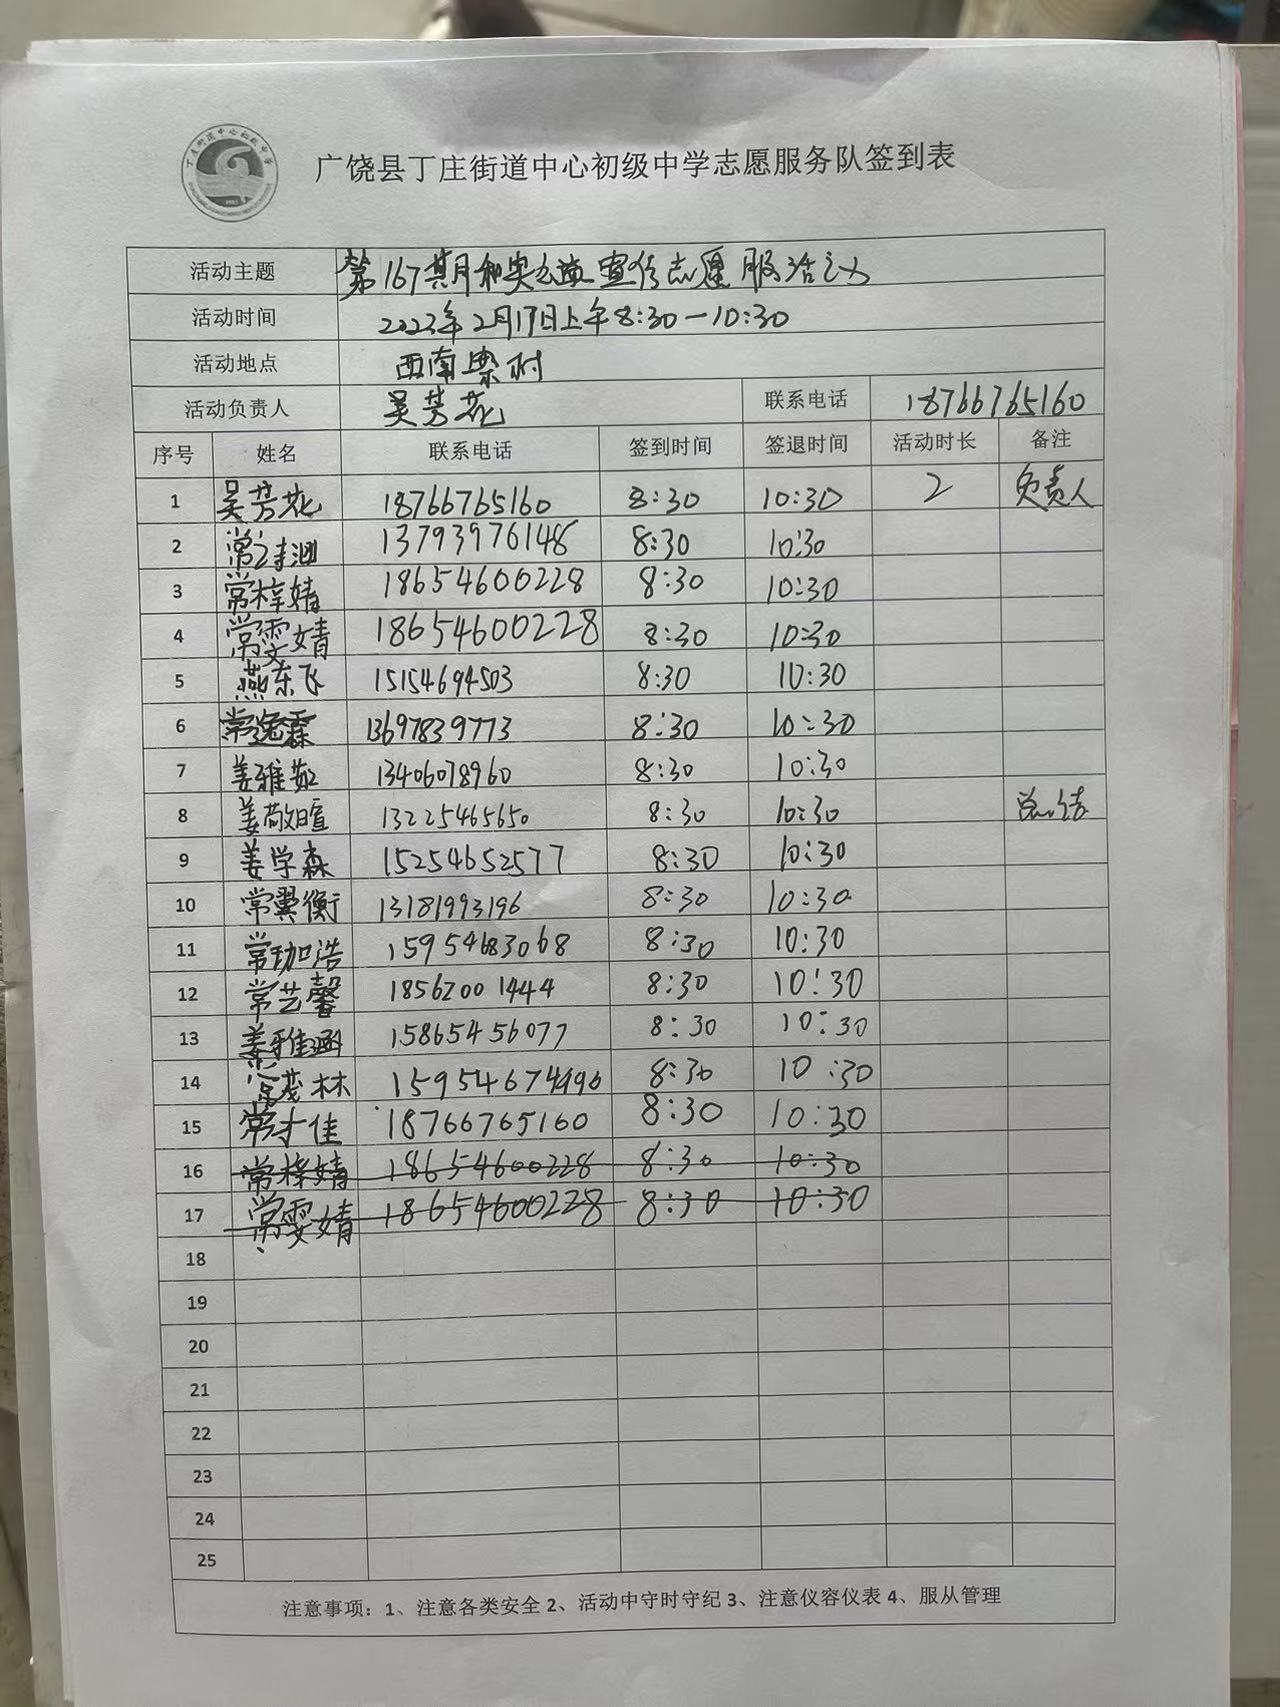 广饶县丁庄街道中心初级中学志愿服务队签到表
活动主题 第167期 宣传志愿服
活动时间 2023年2月17日上午8:30—10:30
活动地点 西南 村
活动负责人 吴芳花 联系电话 18766765160
序号 姓名 联系电话 签到时间 签退时间 活动时长 备注
1 吴芳花 18766765160 8:30 10:30 2 负责人
2 常诗涵 13793976148 8:30 10:30
3 常梓婧 18654600228 8:30 10:30
4 常雯婧 18654600228 8:30 10:30
5 燕东飞 15154694503 8:30 10:30
6 常逸霖 13697839773 8:30 10:30
7 姜雅茹 13406078960 8:30 10:30
8 姜敬暄 13225465650 8:30 10:30 总结
9 姜学森 15254652577 8:30 10:30
10 常翼衡 13181993196 8:30 10:30
11 常珈浩 15954683068 8:30 10:30
12 常艺馨 18562001444 8:30 10:30
13 姜雅涵 15865456077 8:30 10:30
14 常茂林 15954674496 8:30 10:30
15 常才佳 18766765160 8:30 10:30
16 常梓婧 18654600228 8:30 10:30
17 常雯婧 18654600228 8:30 10:30
18
19
20
21
22
23
24
25
注意事项：1、注意各类安全 2、活动中守时守纪 3、注意仪容仪表 4、服从管理